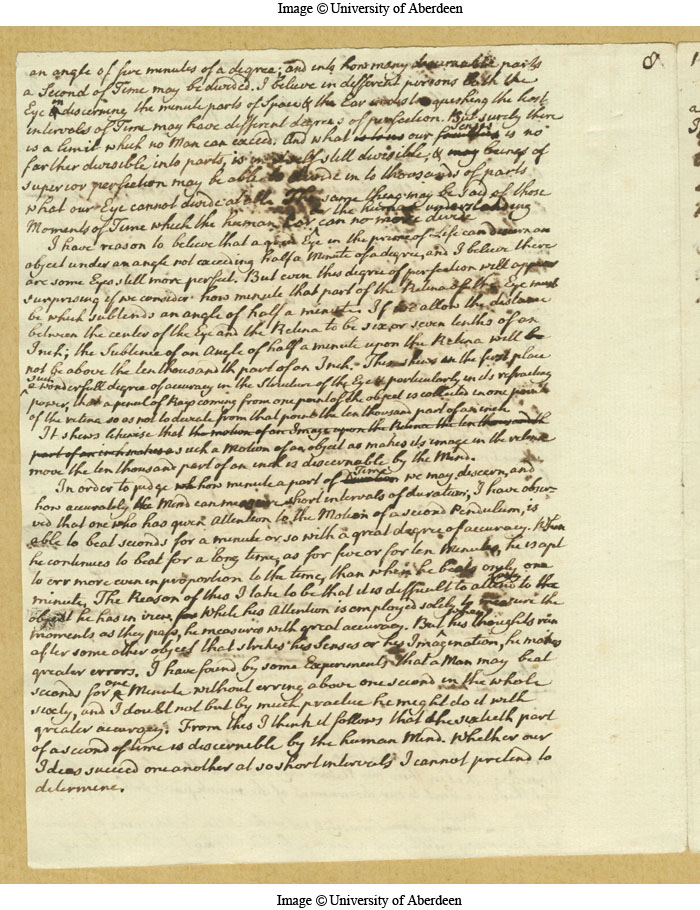 Image © University of Aberdeen
8
an angle of five minutes of a degree; and into how many discernable parts
a Second of Time may be divided. I believe in different persons both the
Eye in discerning the minute parts of Space & the Ear in distinguishing the short
intervals of Time may have different degrees of perfection. But surely there
is a limit which no Man can exceed. And what is to us our faculties Senses is no
farther divisible into parts, is in itself still divisible, & may beings of
superior perfection may be able to divide in to thousands of parts
what our Eye cannot divide at all. The same thing may be said of those
Moments of Time which the human Ear or the human understanding can no more divide
I have reason to believe that a good Eye in the prime of Life can discern an
object under an angle not exceeding half a Minute of a degree, and I believe there
are some Eyes still more perfect. But even this degree of perfection will appear
surprising if we consider how minute that part of the Retina of the Eye must
be which subtends an angle of half a minute. If we allow the distance
between the center of the Eye and the Retina to be six or seven tenths of an
Inch; the Subtense of an Angle of half a minute upon the Retina will be
not be above the ten thousandth part of an Inch. This shews in the first place
such a wonderfull degree of accuracy in the Structure of the Eye & particularly in its refracting
power, that a pencil of Rays coming from one point of the object is collected in one point
of the retina so as not to deviate from that point the ten thousand part of an inch
It shews likewise that the motion of an Image upon the Retina the ten thousandth
part of an inch makes a such a Motion of an object as makes its image in the retina
move the ten thousand part of an inch is discernable by the Mind.
In order to judge how minute a part of Duration Time we may discern, and
how accurately the Mind can measure short intervals of duration, I have obser-
ved that one who has given Attention to the Motion of a second Pendulum, is
able to beat seconds for a minute or so with a great degree of accuracy. When
he continues to beat for a long time, as for five or for ten Minutes, he is apt
to err more even in proportion to the time, than when he beats only one
minute. The Reason of this I take to be that it is difficult to attend to the
object he has in view, for While his Attention is employed solely to measure the
moments as they pass, he measures with great accuracy. But his thoughts run
after some other object that strikes his Senses or his Imagination, he makes
greater errors. I have found by some Experiments that a Man may beat
seconds for one Minute without erring above one second in the whole
sixty, and I doubt not but by much practice he might do it with
greater accuracy. From this I think it follows that the sixtieth part
of a second of time is discernible by the human Mind. Whether our
Ideas succeed one another at so short intervals I cannot pretend to
determine.
Image © University of Aberdeen